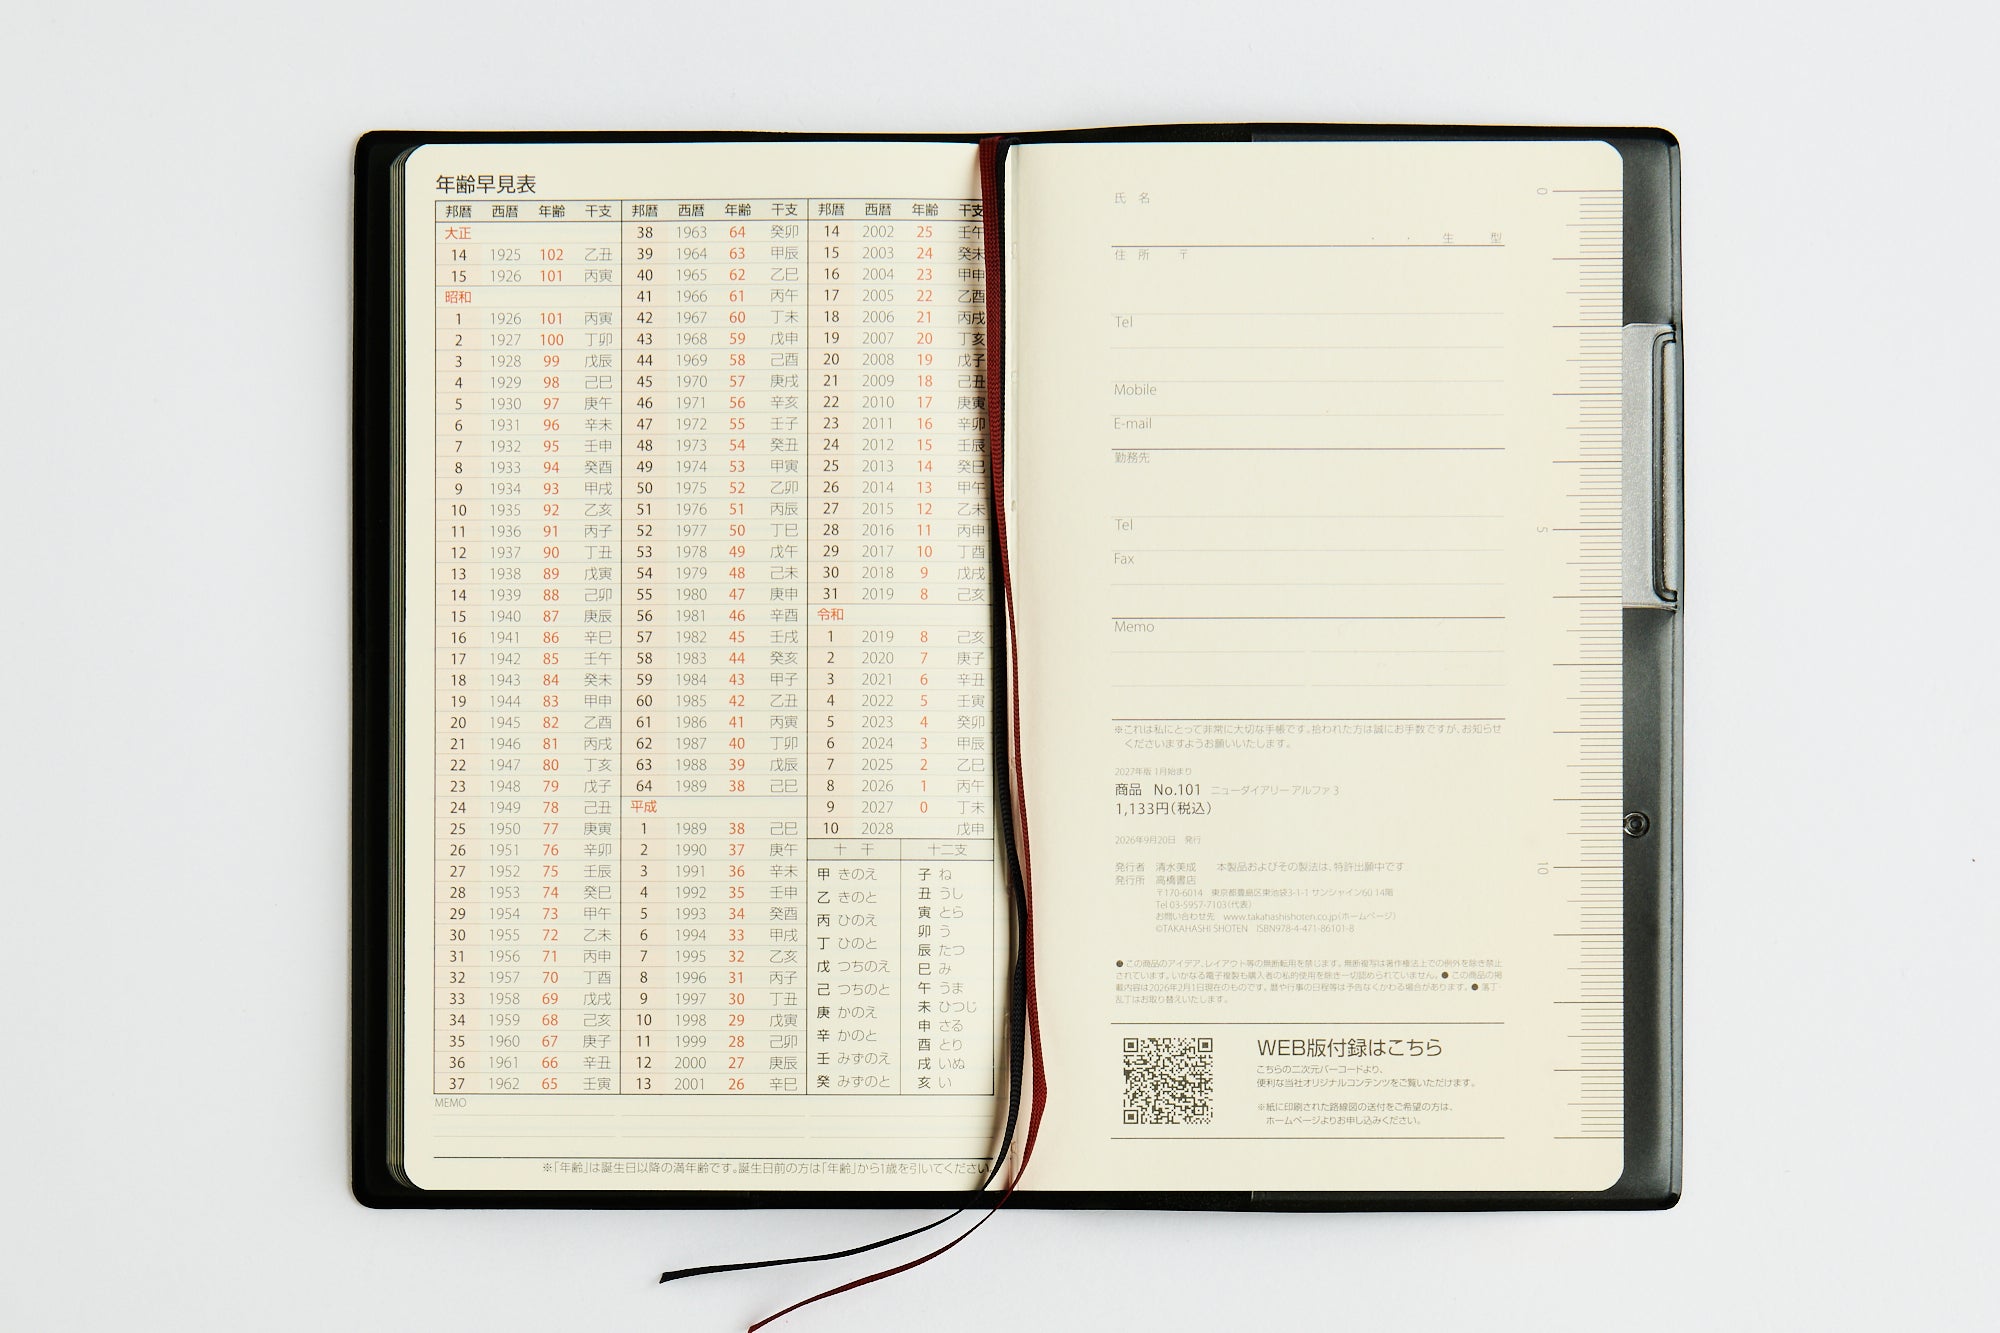 年齢早見表
邦暦 西暦 年齢 干支
大正
14 1925 102 乙丑
15 1926 101 丙寅
昭和
1 1926 101 丙寅
2 1927 100 丁卯
3 1928 99 戊辰
4 1929 98 己巳
5 1930 97 庚午
6 1931 96 辛未
7 1932 95 壬申
8 1933 94 癸酉
9 1934 93 甲戌
10 1935 92 乙亥
11 1936 91 丙子
12 1937 90 丁丑
13 1938 89 戊寅
14 1939 88 己卯
15 1940 87 庚辰
16 1941 86 辛巳
17 1942 85 壬午
18 1943 84 癸未
19 1944 83 甲申
20 1945 82 乙酉
21 1946 81 丙戌
22 1947 80 丁亥
23 1948 79 戊子
24 1949 78 己丑
25 1950 77 庚寅
26 1951 76 辛卯
27 1952 75 壬辰
28 1953 74 癸巳
29 1954 73 甲午
30 1955 72 乙未
31 1956 71 丙申
32 1957 70 丁酉
33 1958 69 戊戌
34 1959 68 己亥
35 1960 67 庚子
36 1961 66 辛丑
37 1962 65 壬寅
邦暦 西暦 年齢 干支
38 1963 64 癸卯
39 1964 63 甲辰
40 1965 62 乙巳
41 1966 61 丙午
42 1967 60 丁未
43 1968 59 戊申
44 1969 58 己酉
45 1970 57 庚戌
46 1971 56 辛亥
47 1972 55 壬子
48 1973 54 癸丑
49 1974 53 甲寅
50 1975 52 乙卯
51 1976 51 丙辰
52 1977 50 丁巳
53 1978 49 戊午
54 1979 48 己未
55 1980 47 庚申
56 1981 46 辛酉
57 1982 45 壬戌
58 1983 44 癸亥
59 1984 43 甲子
60 1985 42 乙丑
61 1986 41 丙寅
62 1987 40 丁卯
63 1988 39 戊辰
64 1989 38 己巳
平成
1 1989 38 己巳
2 1990 37 庚午
3 1991 36 辛未
4 1992 35 壬申
5 1993 34 癸酉
6 1994 33 甲戌
7 1995 32 乙亥
8 1996 31 丙子
9 1997 30 丁丑
10 1998 29 戊寅
11 1999 28 己卯
12 2000 27 庚辰
13 2001 26 辛巳
邦暦 西暦 年齢 干支
14 2002 25 壬午
15 2003 24 癸未
16 2004 23 甲申
17 2005 22 乙酉
18 2006 21 丙戌
19 2007 20 丁亥
20 2008 19 戊子
21 2009 18 己丑
22 2010 17 庚寅
23 2011 16 辛卯
24 2012 15 壬辰
25 2013 14 癸巳
26 2014 13 甲午
27 2015 12 乙未
28 2016 11 丙申
29 2017 10 丁酉
30 2018 9 戊戌
31 2019 8 己亥
令和
1 2019 8 己亥
2 2020 7 庚子
3 2021 6 辛丑
4 2022 5 壬寅
5 2023 4 癸卯
6 2024 3 甲辰
7 2025 2 乙巳
8 2026 1 丙午
9 2027 0 丁未
10 2028 戊申
十 干
甲 きのえ
乙 きのと
丙 ひのえ
丁 ひのと
戊 つちのえ
己 つちのと
庚 かのえ
辛 かのと
壬 みずのえ
癸 みずのと
十二支
子 ね
丑 うし
寅 とら
卯 う
辰 たつ
巳 み
午 うま
未 ひつじ
申 さる
酉 とり
戌 いぬ
亥 い
MEMO
※「年齢」は誕生日以降の満年齢です。誕生日前の方は「年齢」から1歳を引いてください。
氏 名
・ ・ 生 型
住 所 〒
Tel
Mobile
E-mail
勤務先
Tel
Fax
Memo
※これは私にとって非常に大切な手帳です。拾われた方は誠にお手数ですが、お知らせ
くださいますようお願いいたします。
2027年版 1月始まり
商品 No.101 ニューダイアリー アルファ 3
1,133円(税込)
2026年9月20日 発行
発行者 清水美成 本製品およびその製法は、特許出願中です
発行所 高橋書店
〒170-6014 東京都豊島区東池袋3-1-1 サンシャイン60 14階
Tel 03-5957-7103(代表)
お問い合わせ先 www.takahashishoten.co.jp(ホームページ)
©TAKAHASHI SHOTEN ISBN978-4-471-86101-8
● この商品のアイデア、レイアウト等の無断転用を禁じます。無断複写は著作権法上での例外を除き禁止
されています。いかなる電子複製も購入者の私的使用を除き一切認められていません。● この商品の掲
載内容は2026年2月1日現在のものです。暦や行事の日程等は予告なくかわる場合があります。● 落丁・
乱丁はお取り替えいたします。
WEB版付録はこちら
こちらの二次元バーコードより、
便利な当社オリジナルコンテンツをご覧いただけます。
※紙に印刷された路線図の送付をご希望の方は、
ホームページよりお申し込みください。
0
5
10